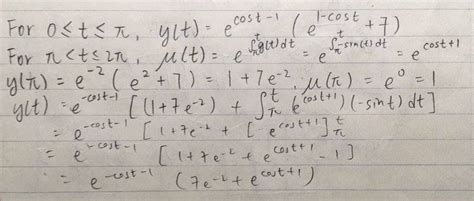 For 0 ≤ t ≤ π, y(t) = e^{cost-1} (e^{1-cost} + 7)
For π < t ≤ 2π, μ(t) = e^{∫_π^t g(t) dt} = e^{∫_π^t -sin(t) dt} = e^{cost+1}
y(π) = e^{-2} (e^2 + 7) = 1 + 7e^{-2}, μ(π) = e^0 = 1
y(t) = e^{-cost-1} [(1 + 7e^{-2}) + ∫_π^t (e^{cost+1})(-sint) dt]
= e^{-cost-1} [1 + 7e^{-2} + [e^{cost+1}]_π^t]
= e^{-cost-1} [1 + 7e^{-2} + e^{cost+1} - 1]
= e^{-cost-1} (7e^{-2} + e^{cost+1})